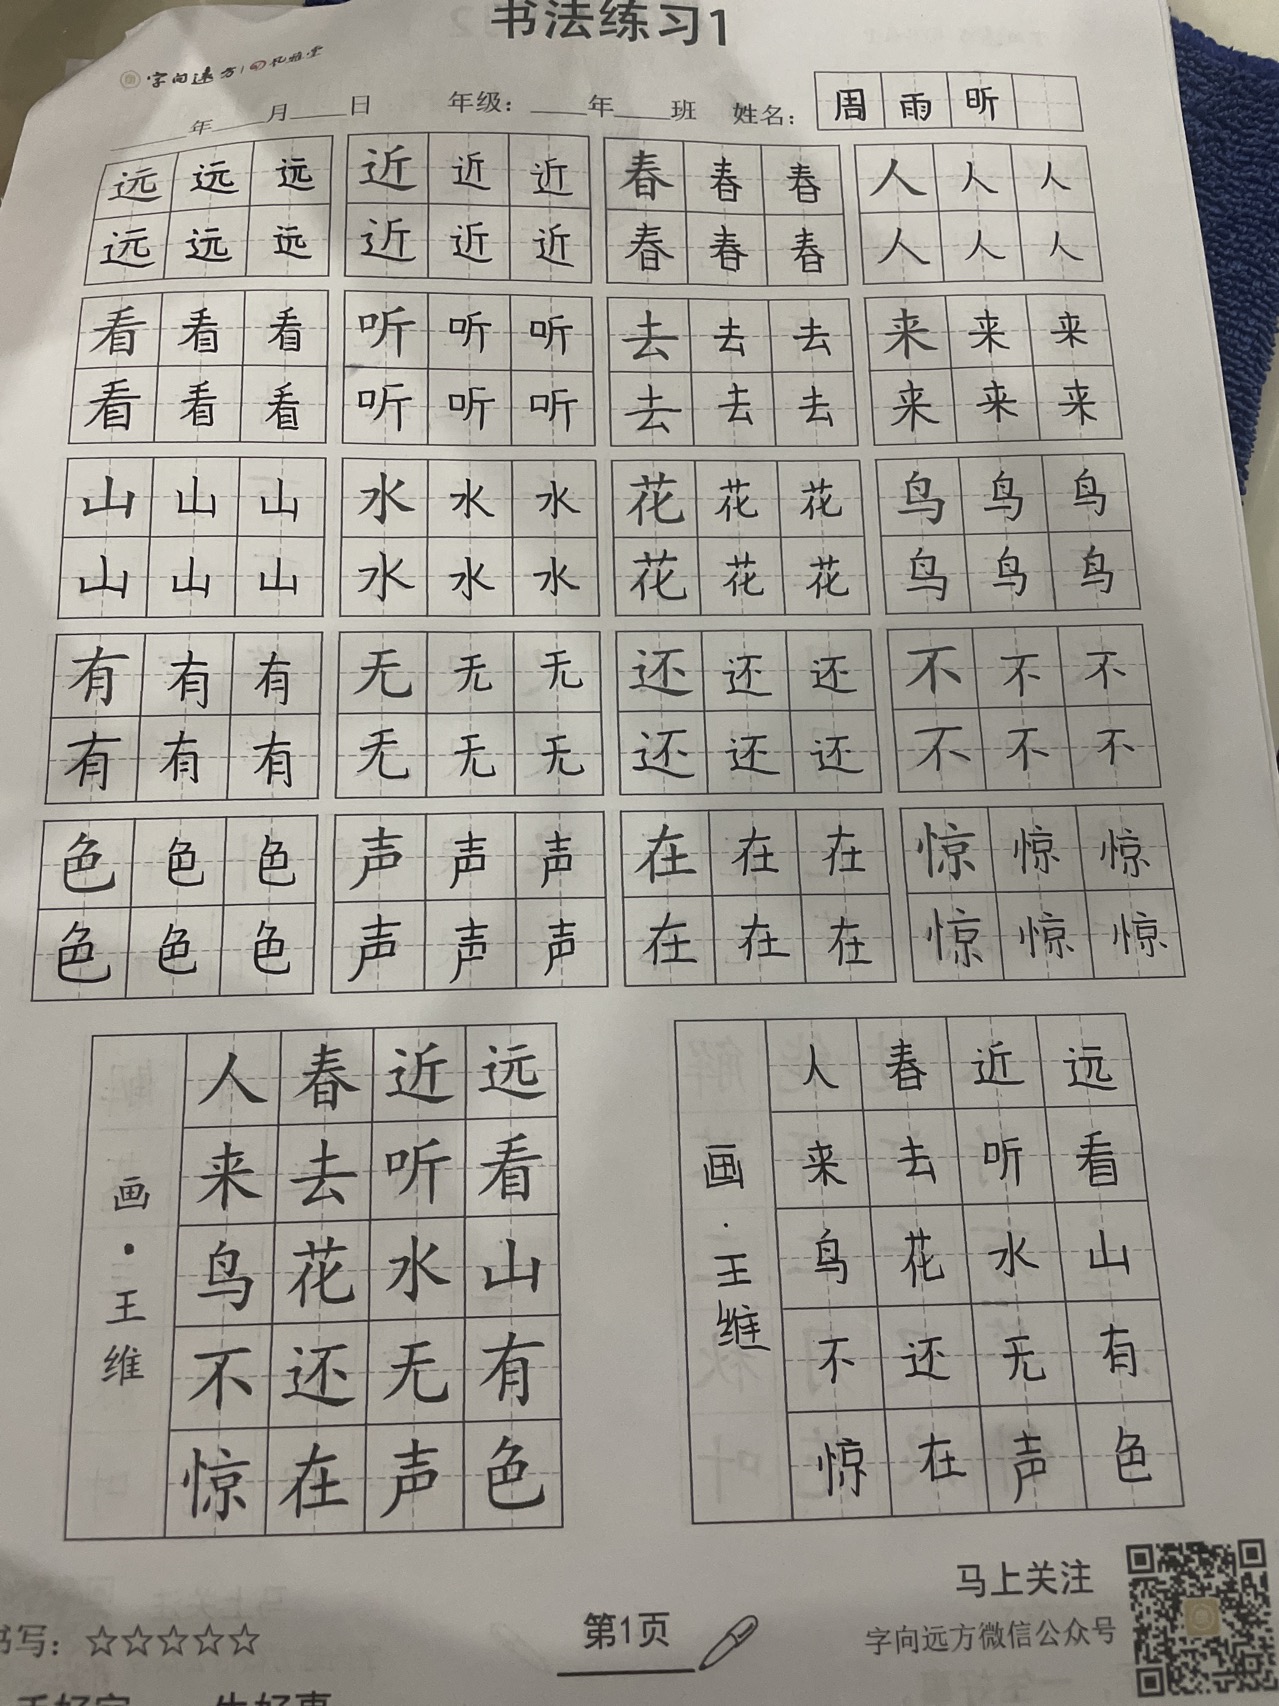 书法练习1
字向远方
年 月 日 年级： 年 班 姓名： 周雨昕
远远远 近近近 春春春 人人人
远远远 近近近 春春春 人人人
看看看 听听听 去去去 来来来
看看看 听听听 去去去 来来来
山山山 水水水 花花花 鸟鸟鸟
山山山 水水水 花花花 鸟鸟鸟
有有有 无无无 还还还 不不不
有有有 无无无 还还还 不不不
色色色 声声声 在在在 惊惊惊
色色色 声声声 在在在 惊惊惊
远看山有色
近听水无声
春去花还在
人来鸟不惊
画·王维
远看山有色
近听水无声
春去花还在
人来鸟不惊
画·王维
马上关注
书写：☆☆☆☆☆
第1页
字向远方微信公众号